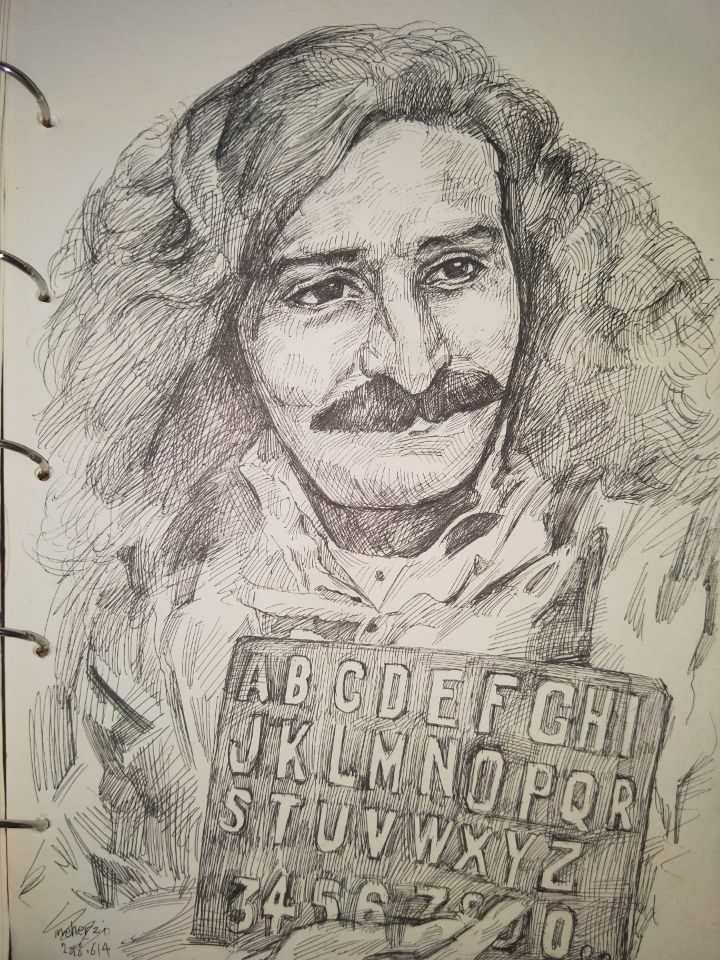 ABCDEFGHI
JKLMNOPQR
STUVWXYZ
34567890
2018.614